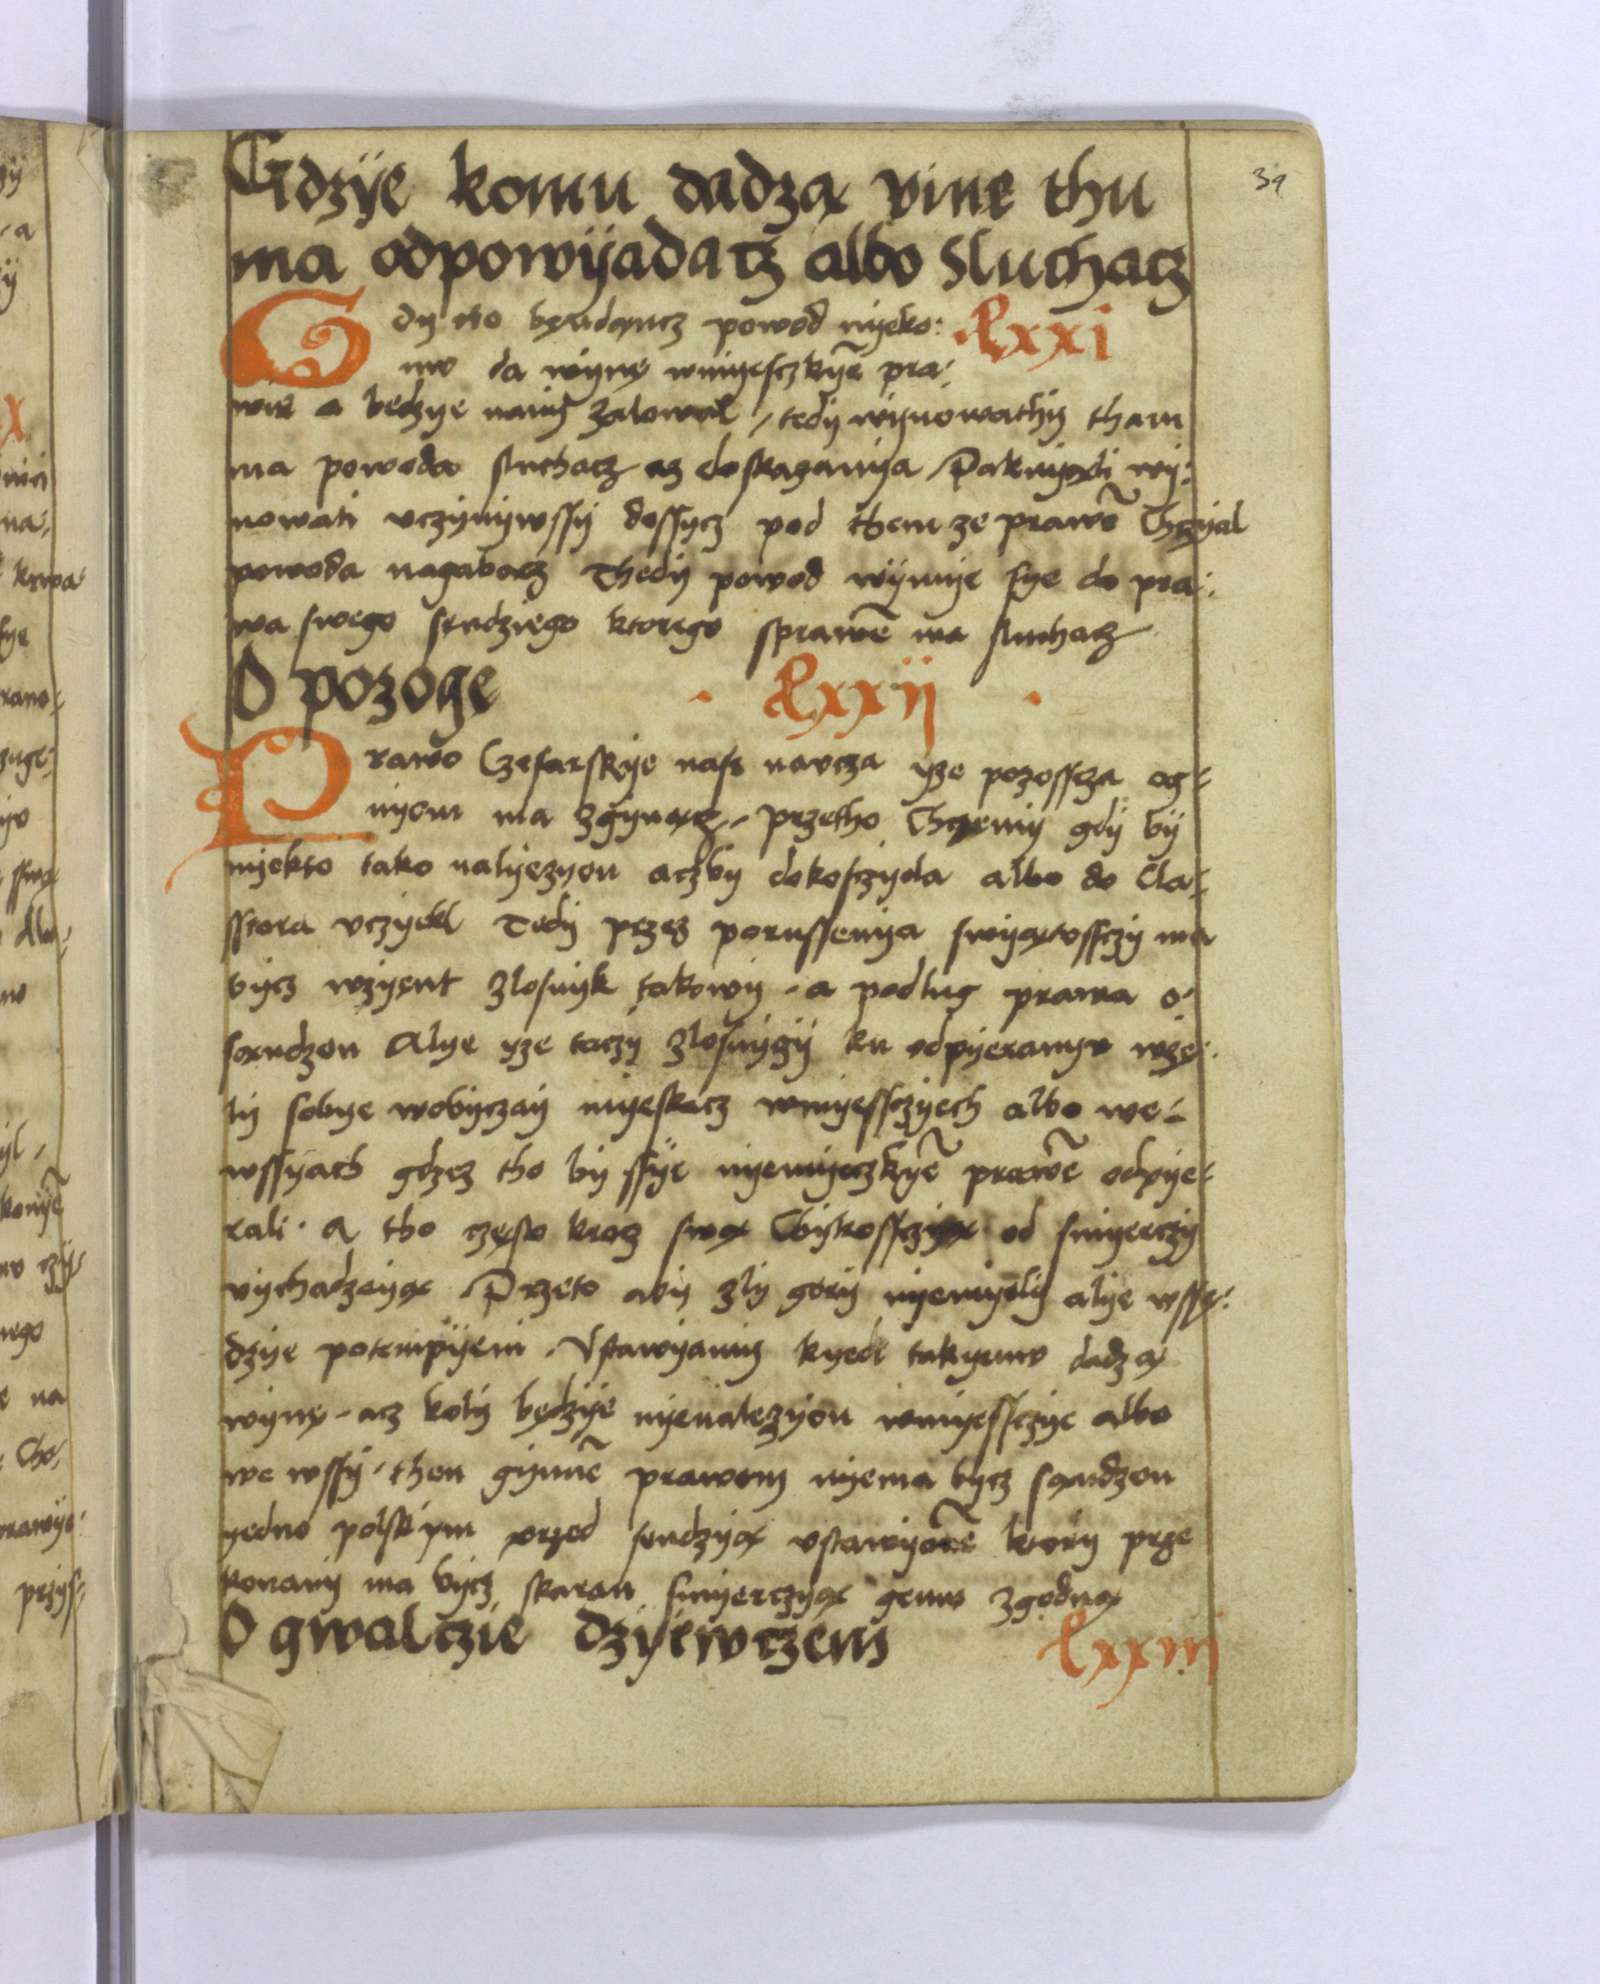 39
Gdzÿe komu dadzą vine thu
ma odpowÿadacz albo sluchacz
Gdy kto bęndąncz powod nyeko:
mv da winę wmyesczkyē pra:
wie a bedzye namỹ zalowal / tedy wynowathy tham
ma powoda sluchacz az doskazanya / Paknyąli wy:
nowati vczynywssy dossycz pod them ze prawē Chczyal
powoda nagabacz Thedy powod wÿmye sye do pra:
wa swego sendziego ktorego sprawē ma sluchacz
O pozoge · Lxxii ·
Prawo Czesarskye nass navcza yze pozoscza og:
nyom ma zgynącz / przetho Chczemy gdy by
nyekto tako nalyezyon aczby dokosczyola albo do Cla:
sstora vczyekl Tedy przez porussenya swyątossczy ma
bycz wzyent zlosnyk takowy · a podlug prawa o:
sąndzon Alye yze taczy zlosnygy ku odpyeranyv wzę:
ly sobye wobyczay myeskacz wmyessczyech albo we:
wssyach gdzez tho by ssÿe nyemyeczkyē prawē odpye:
rali · A tho często krocz swą Chytrossczyą od smyerczy
vychadzayą Przeto aby zly gory nyemyely alye wssę:
dzye potempyeni · Vstawyamy kyedi takyemv dadzą
wynę · acz koly będzye nyenalezyon wmyessczye albo
we wssy · then gynnē prawem nyema bycz sąndzon
yedno polskym przed sendzyą vstawyonē ktory prze
konany ma bycz skaran smyerczyą gemv zgodną
O gwalczie dzyewczem Lxxiii
Lxxi